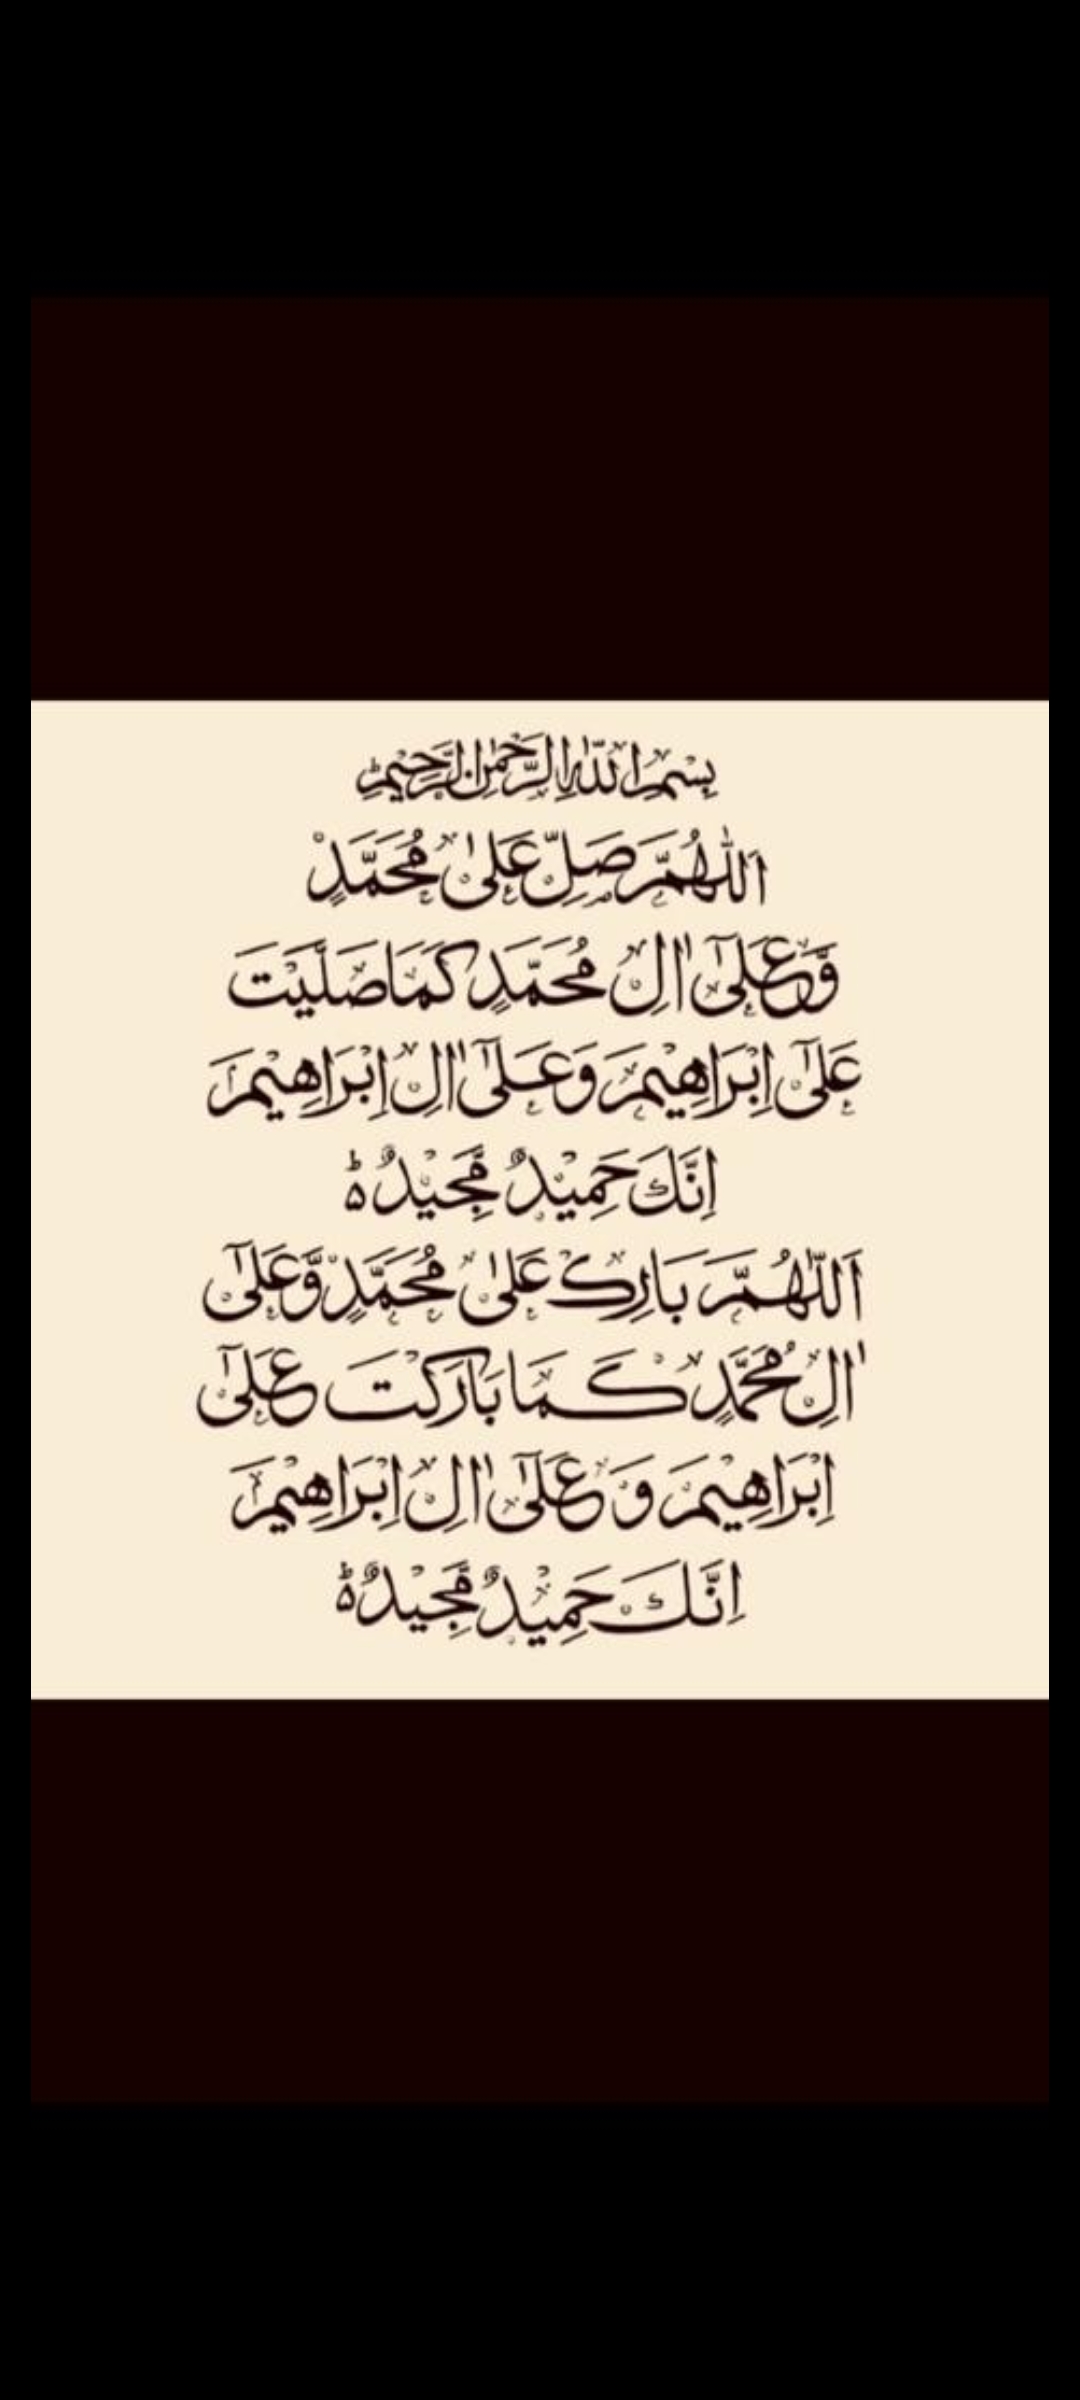 بِسْمِ اللّٰهِ الرَّحْمٰنِ الرَّحِيْمِ ؕ
اَللّٰهُمَّ صَلِّ عَلٰى مُحَمَّدٍ
وَّعَلٰٓى اٰلِ مُحَمَّدٍ كَمَا صَلَّيْتَ
عَلٰٓى اِبْرَاهِيْمَ وَعَلٰٓى اٰلِ اِبْرَاهِيْمَ
اِنَّكَ حَمِيْدٌ مَّجِيْدٌ ہؕ
اَللّٰهُمَّ بَارِكْ عَلٰى مُحَمَّدٍ وَّعَلٰٓى
اٰلِ مُحَمَّدٍ كَمَا بَارَكْتَ عَلٰٓى
اِبْرَاهِيْمَ وَعَلٰٓى اٰلِ اِبْرَاهِيْمَ
اِنَّكَ حَمِيْدٌ مَّجِيْدٌ ہؕ